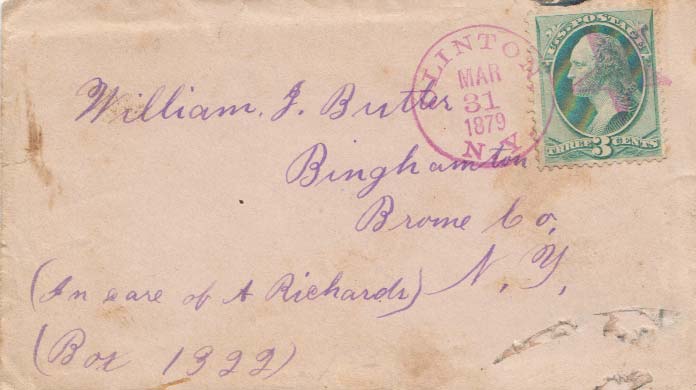 CLINTON
MAR
31
1879
N Y
U.S. POSTAGE
THREE 3 CENTS
William. J. Butler
Binghamton
Brome Co,
N, Y,
(In care of A Richards)
(Box 1322)